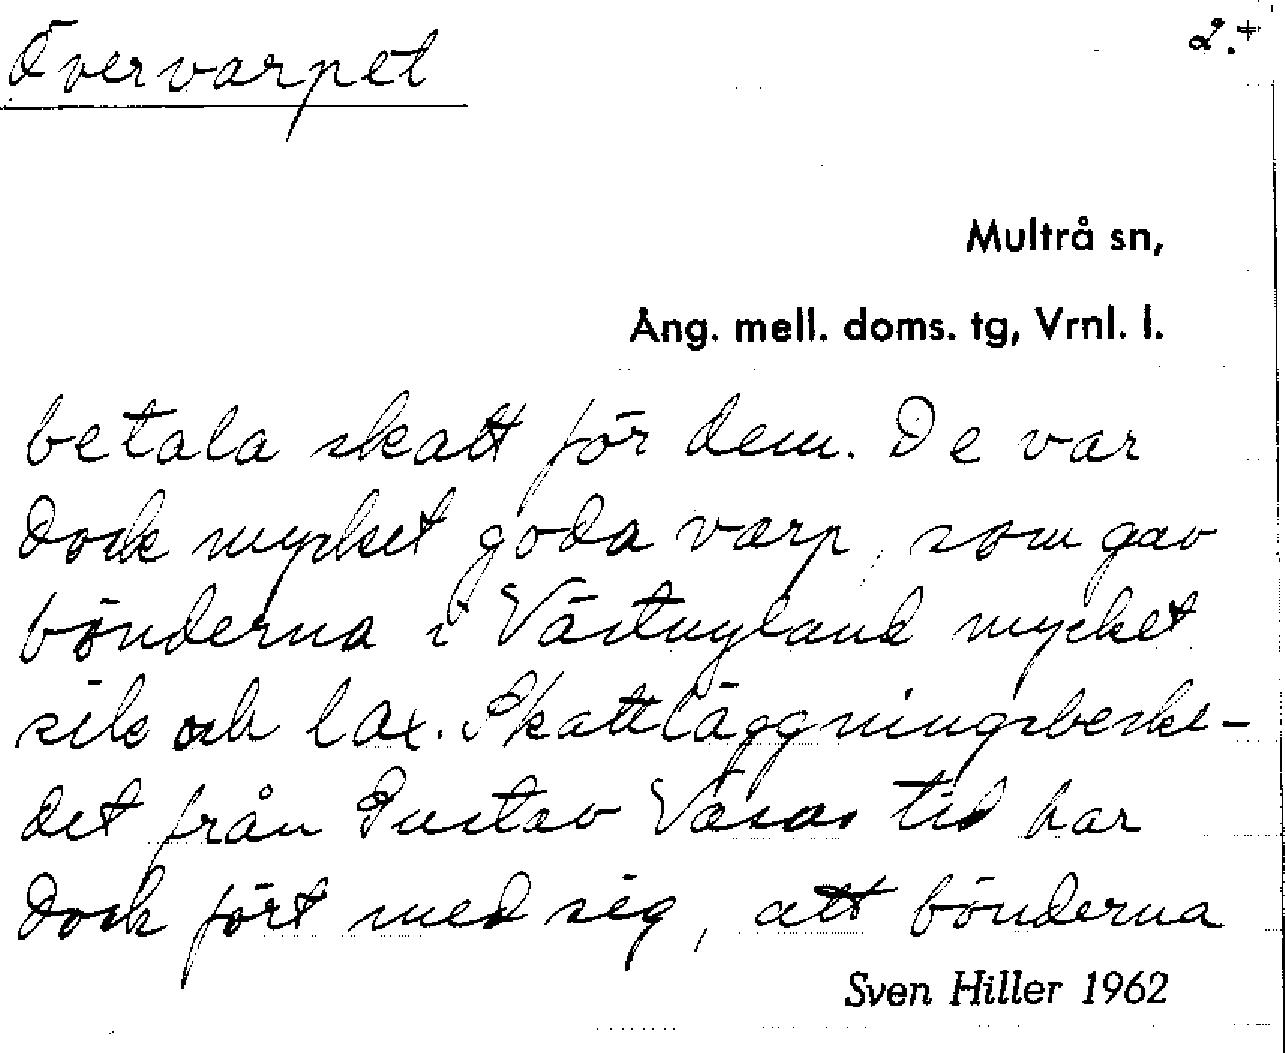 Övervarpet
2.+
Multrå sn,
Ång. mell. doms. tg, Vrnl. l.
betala skatt för dem. De var
dock mycket goda varp, som gav
bönderna i Västnyland mycket
sik och lax. Skattläggningsbeske-
det från Gustav Vasas tid har
dock fört med sig, att bönderna
Sven Hiller 1962